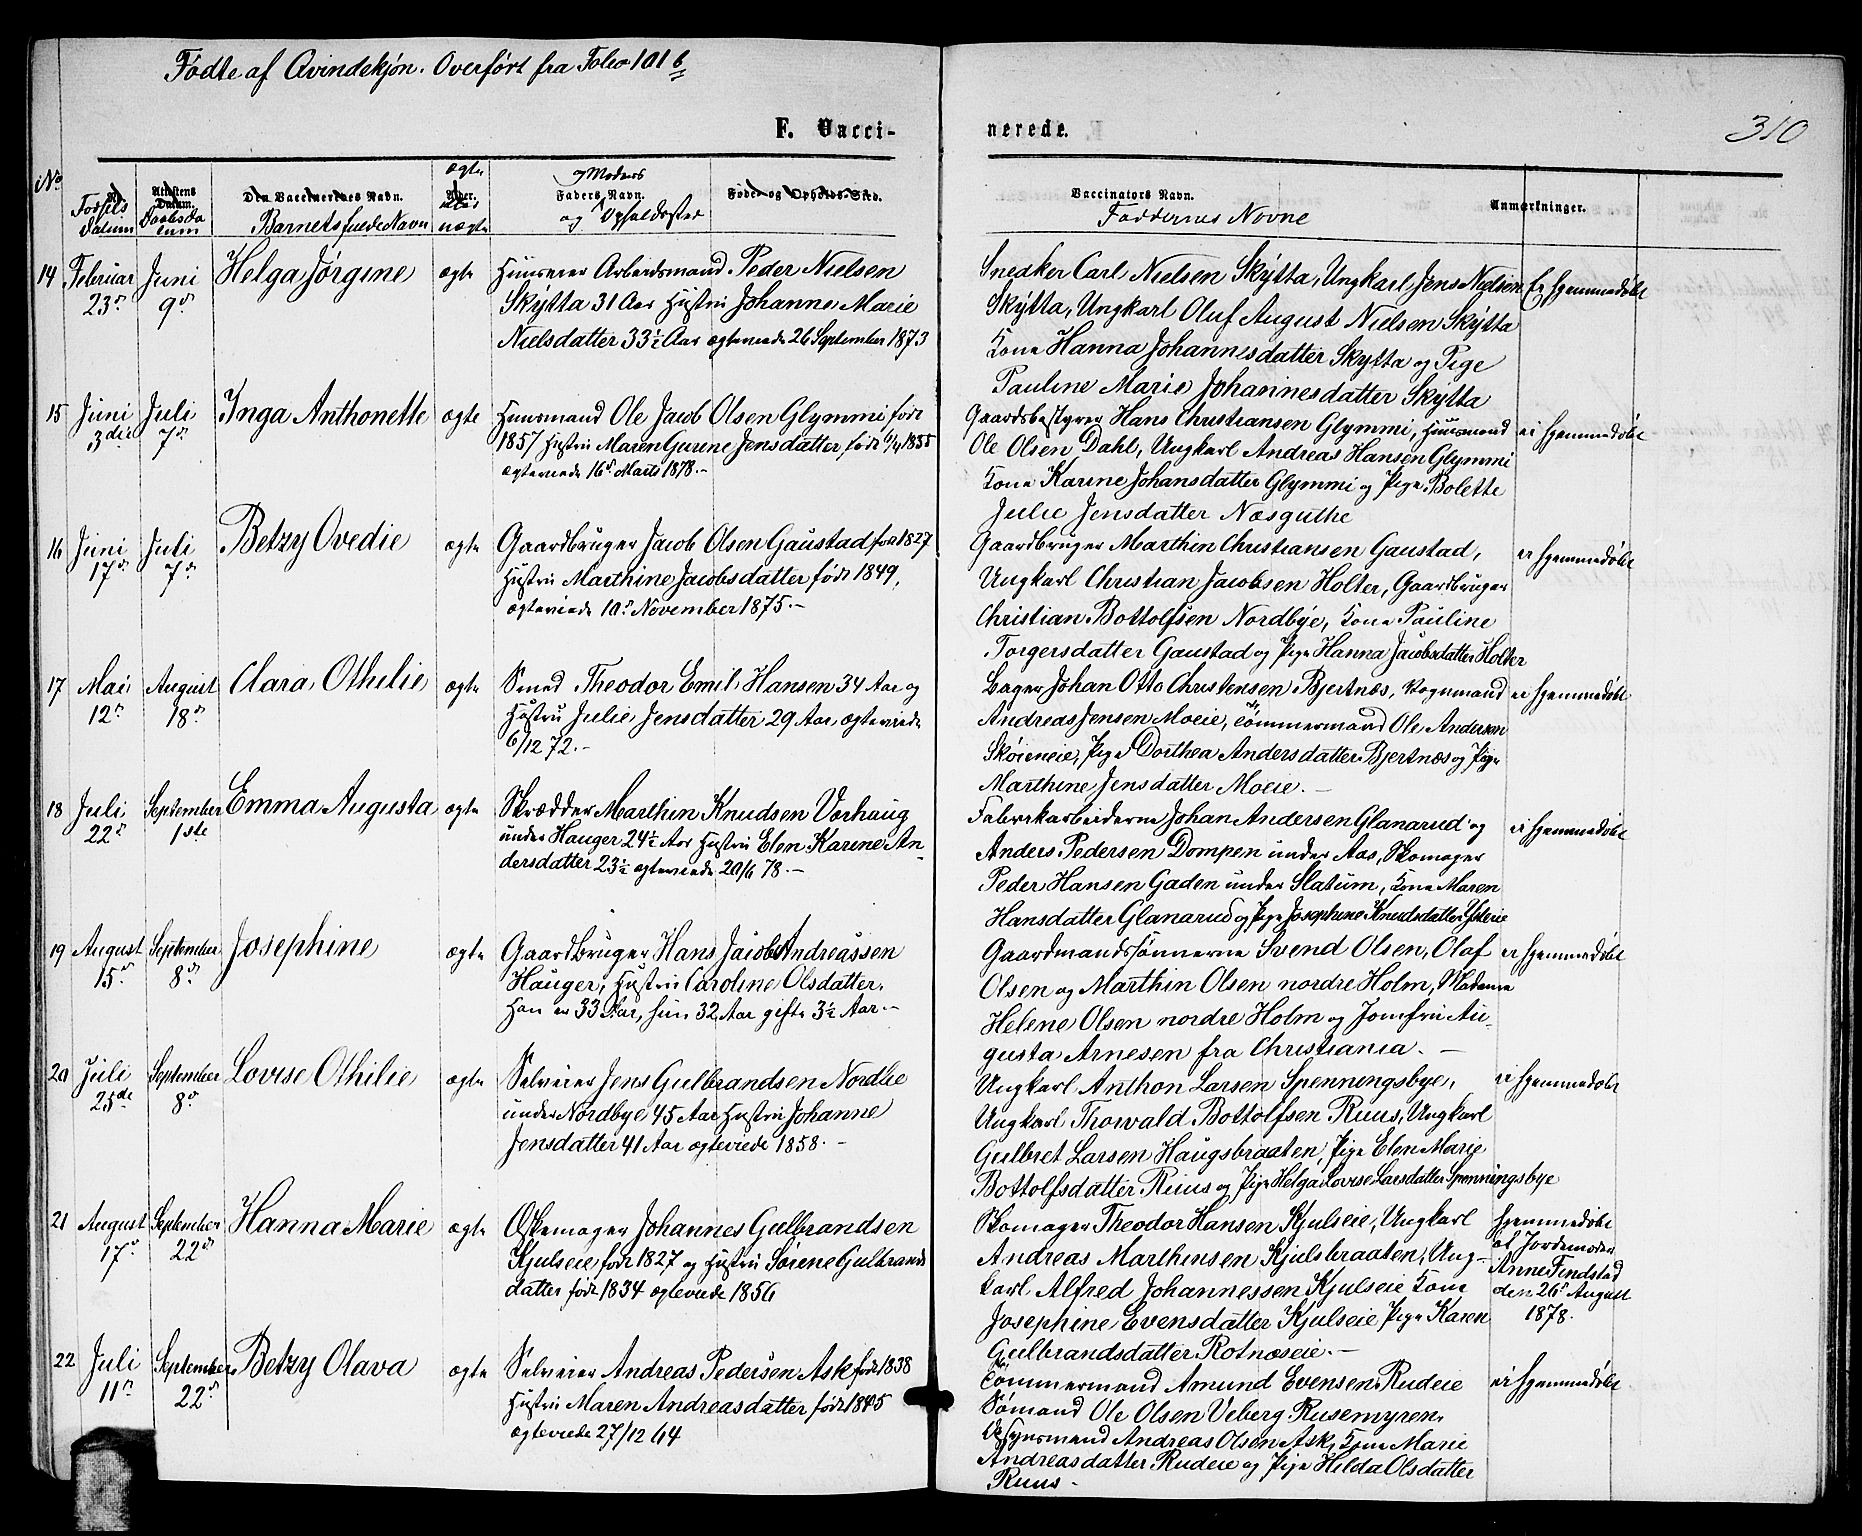 Fødte af Qvindekjøn. Overført fra Folio 101 b
310
F. Vacci-
nerede.
No
Fødsels Datum
Attestens Datum.
Daabsdatum
Den Vaccineredes Navn.
Barnets fulde Navn
Alder.
ægte eller uægte
Faders Navn.
og Moders
og Opholdssted
Føde- og Opholds-Sted.
Vaccinators Navn.
Faddernes Navne
Anmærkninger.
14 Februar 23de
Juni 9de
Helga Jørgine
ægte
Huuseier Arbeidsmand Peder Nielsen
Skÿtta 31 Aar Hustru Johanne Marie
Nielsdatter 33½ Aar ægteviede 26 September 1873
Snedker Carl Nielsen Skÿtta, Ungkarl Jens Nielsen
Skÿtta, Ungkarl Oluf August Nielsen Skÿtta
Kone Hanna Johannesdatter Skytta og Pige
Pauline Marie Johannesdatter Skÿtta
Ej Hjemmedøbt
15 Juni 3die
Juli 7de
Inga Anthonette
ægte
Huusmand Ole Jacob Olsen Glymmi, født
1857 Hustru Maren Gurine Jensdatter, født 1855
ægteviede 16de Marts 1878.-
Gaardsbestyrer Hans Christiansen Glymmi, Huusmand
Ole Olsen Dahl, Ungkarl Andreas Hansen Glymmi
Kone Karine Johansdatter Glymmi og Pige Bolette
Julie Jensdatter Næsguthe
ei Hjemmedøbt
16 Juni 17de
Juli 7de
Betzy Ovedie
ægte
Gaardbruger Jacob Olsen Gaustad født 1827
Hustru Marthine Jacobsdatter født 1849,
ægteviede 10de November 1875.-
Gaardbruger Marthin Christiansen Gaustad,
Ungkarl Christian Jacobsen Holter, Gaardbruger
Christian Bottolfsen Nordbÿe, Kone Pauline
Torgersdatter Gaustad og Pige Hanna Jacobsdatter Holter
ei Hjemmedøbt
17 Mai 12te
August 18de
Clara Othilie
ægte
Smed Theodor Emil Hansen 34 Aar og
Hustru Julie Jensdatter 29 Aar, ægteviede
6/12 72.-
Bager Johan Otto Christensen Bjertnæs, Vognmand
Andreas Jensen Moeie, Tømmermand Ole Andersen
Skøieneie, Pige Dorthea Andersdatter Bjertnæs og Pige
Marthine Jensdatter Moeie.-
ei Hjemmedøbt
18 Juli 22de
September 1ste
Emma Augusta
ægte
Skrædder Marthin Knudsen Vorhaug
under Hauger 24½ Aar Hustru Elen Karine An-
dersdatter 23½ ægteviede 20/6 78.-
Fabrikarbeiderne Johan Andersen Glanarud og
Anders Pedersen Dompen under Aas, Skomager
Peder Hansen Gaden under Slatum, Kone Maren
Hansdatter Glanarud og Pige Josephine Knudsdatter
ei Hjemmedøbt
19 August 15de
September 8de
Josephine
ægte
Gaardbruger Hans Jacob Andreassen
Hauger, Hustru Caroline Olsdatter.
Han er 33 Aar, hun 32 Aar gifte 3½ Aar.-
Gaardmandssønnerne Svend Olsen, Olaf
Olsen og Marthin Olsen nordre Holm, Madame
Helene Olsen nordre Holm og Jomfru Au-
gusta Arnesen fra Christiania.-
ei Hjemmedøbt
20 Juli 25de
September 8de
Lovise Othilie
ægte
Selveier Jens Gulbrandsen Nordlie
under Nordbye 45 Aar Hustru Johanne
Jensdatter 41 Aar ægteviede 1858.-
Ungkarl Anthon Larsen Spenningsbye,
Ungkarl Thorvald Bottolfsen Ruus, Ungkarl
Gulbret Larsen Haugsbraaten, Pige Elen Marie
Bottolfsdatter Ruus og Pige Helga Lovise Larsdatter Spenningsbye
ei Hjemmedøbt
21 August 17de
September 22de
Hanna Marie
ægte
Æskemager Johannes Gulbrandsen
Kjulseie, født 1827 og Hustru Sørene Gulbrands
datter født 1834 ægteviede 1856
Skomager Theodor Hansen Kjulseie, Ungkarl
Andreas Marthinsen Kjulsbraaten, Ung-
karl Alfred Johannessen Kjulseie Kone
Josephine Evensdatter Kjulseie Pige Karen
Gulbrandsdatter Rotnæseie.-
Hjemmedøbt
af Jordemoder
Anne Tindstad
den 26de August
1878.
22 Juli 11te
September 22de
Betzy Olava
ægte
Selveier Andreas Pedersen Ask født 1838
Hustru Maren Andreasdatter født 1845
ægteviede 27/12 64
Tømmermand Amund Evensen Rudeie
Sømand Ole Olsen Veberg Rusemyren,
Andreas Olsen Ask, Kone Marie
Andreasdatter Rudeie og Pige Hilda Olsdatter
Ruus.-
ei Hjemmedøbt